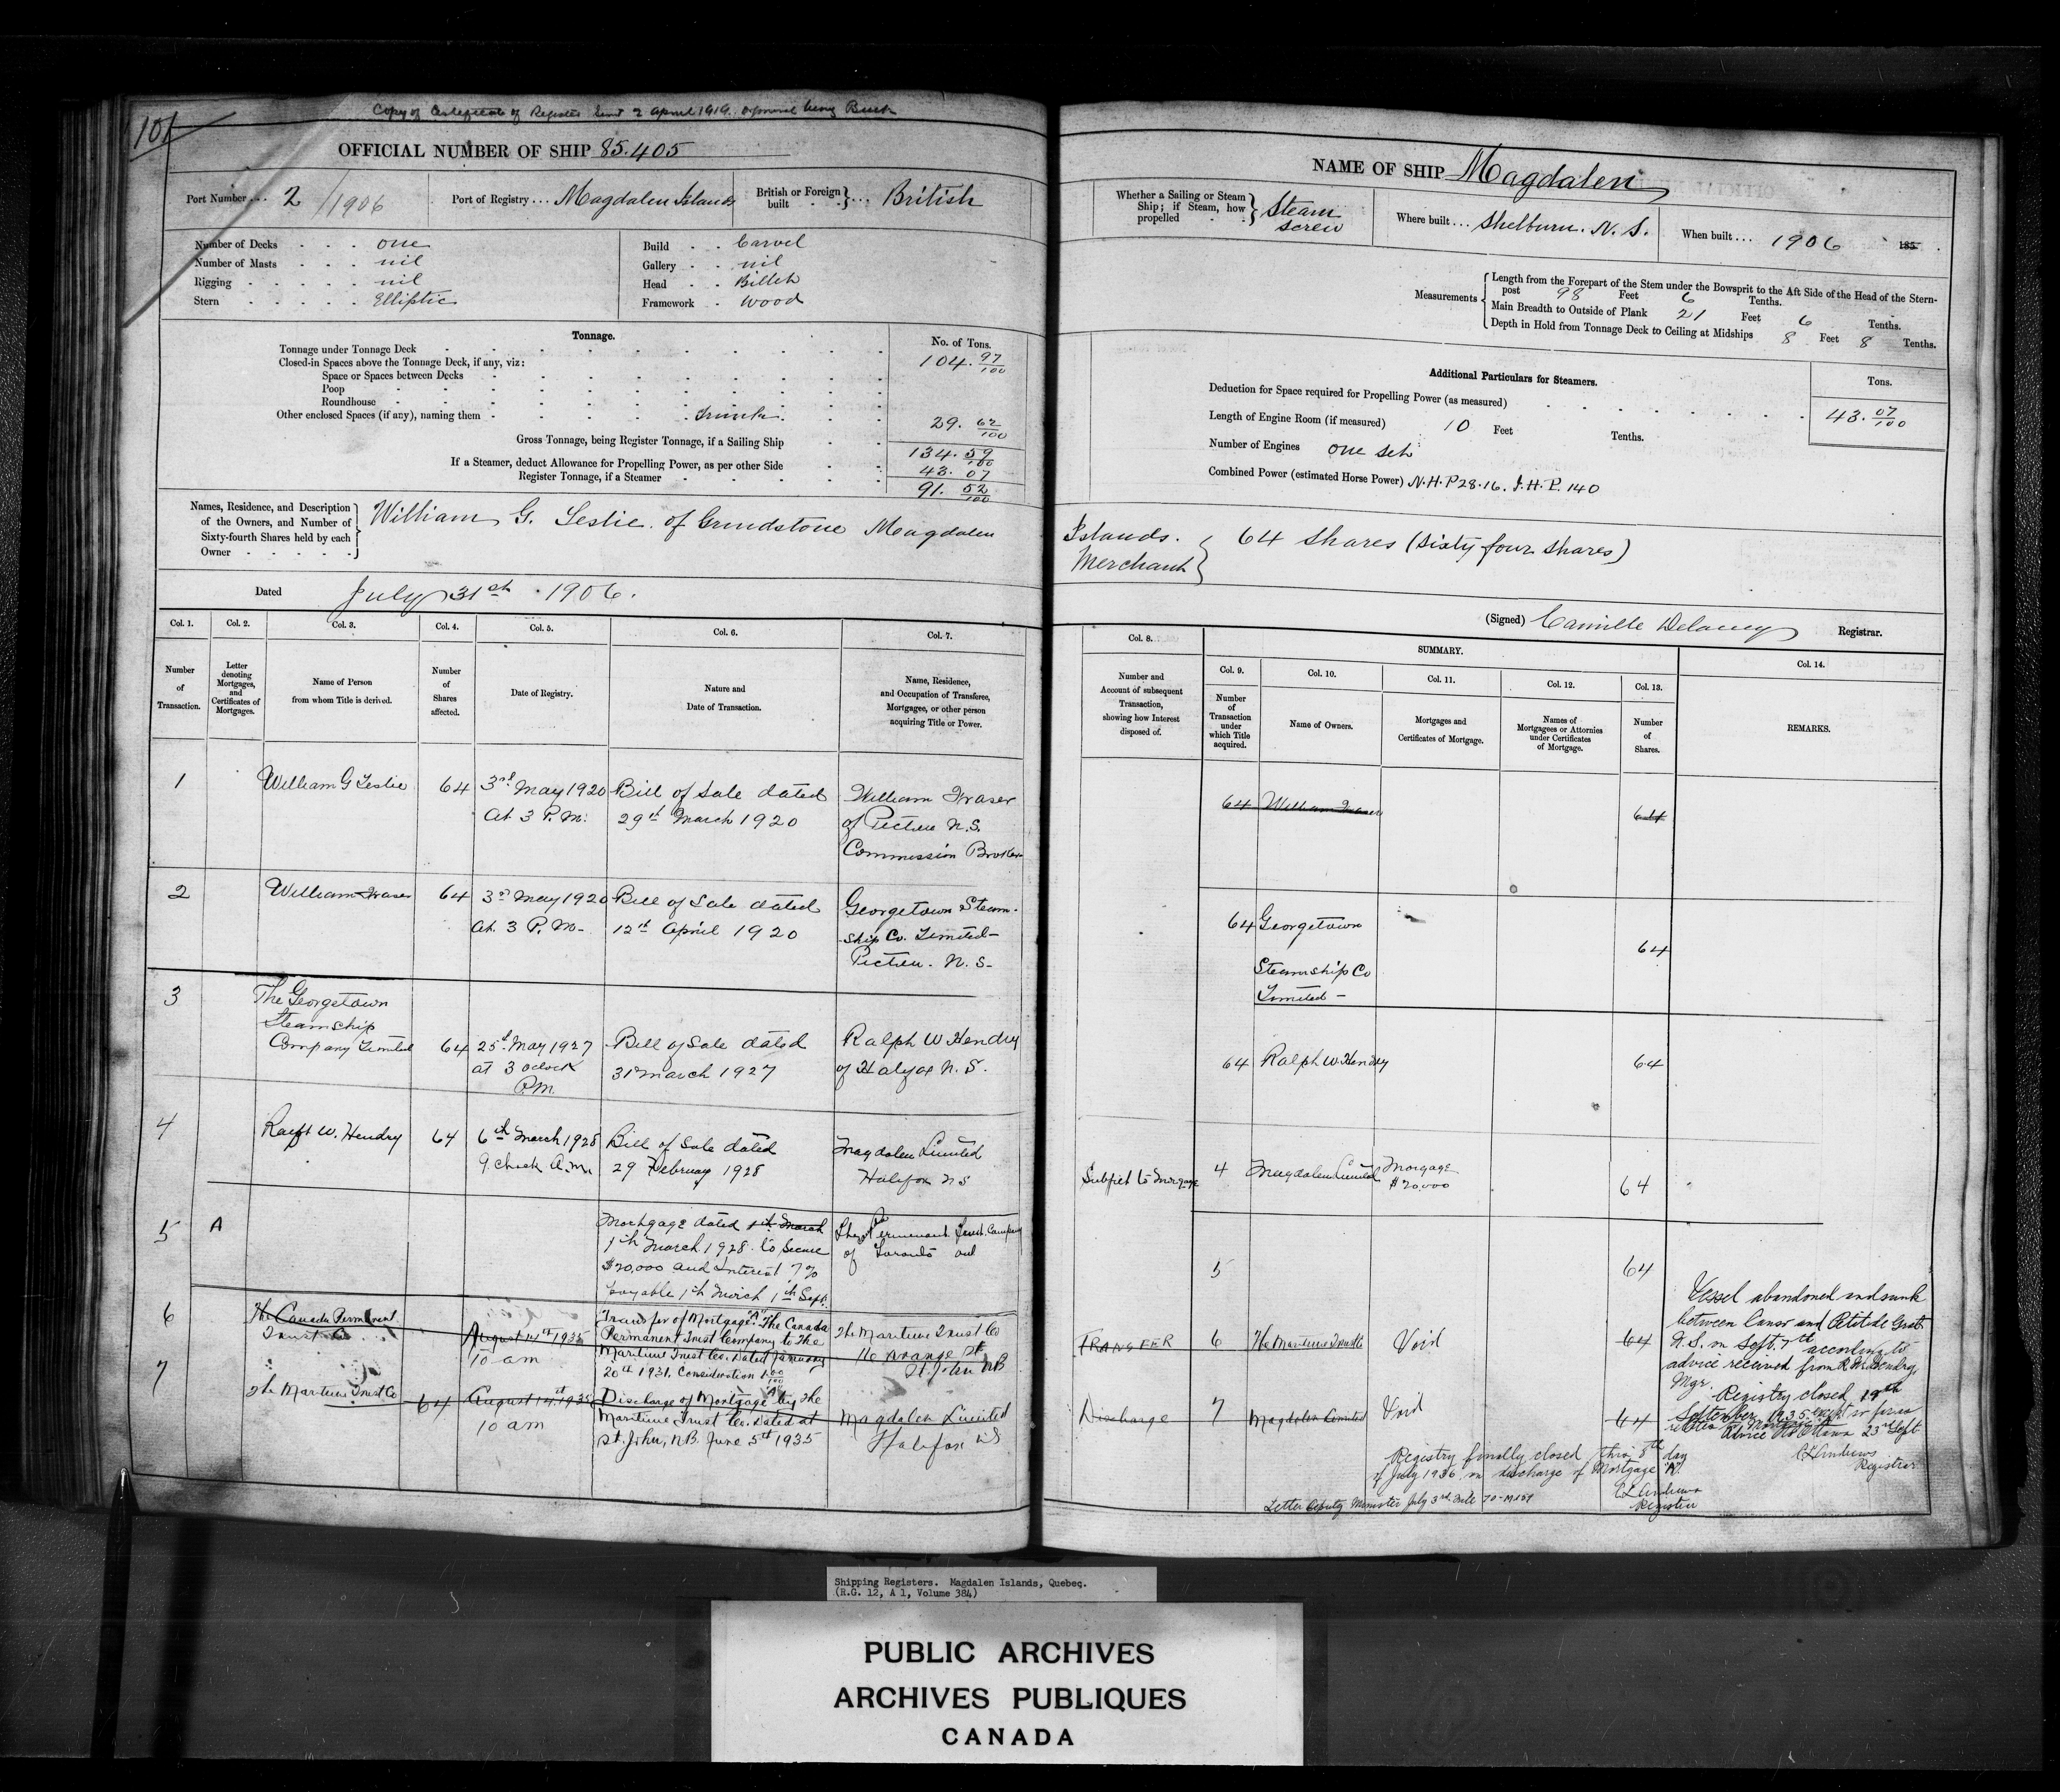 101
Copy of Certificate of Register Sent 2 April 1919. original being Burnt
OFFICIAL NUMBER OF SHIP 85.405
Port Number ... 2/1906
Port of Registry ... Magdalen Islands
British or Foreign built } ... British
Number of Decks one
Number of Masts nil
Rigging nil
Stern Elliptic
Build Carvel
Gallery nil
Head Billet
Framework Wood
Tonnage.
No. of Tons.
Tonnage under Tonnage Deck 104. 97/100
Closed-in Spaces above the Tonnage Deck, if any, viz:
Space or Spaces between Decks
Poop
Roundhouse
Other enclosed Spaces (if any), naming them Trunk 29. 62/100
Gross Tonnage, being Register Tonnage, if a Sailing Ship 134. 59/100
If a Steamer, deduct Allowance for Propelling Power, as per other Side 43. 07
Register Tonnage, if a Steamer 91. 52/100
Names, Residence, and Description
of the Owners, and Number of
Sixty-fourth Shares held by each
Owner
William G. Leslie of Grindstone Magdalen
Dated July 31st 1906.
Col. 1. Col. 2. Col. 3. Col. 4. Col. 5. Col. 6. Col. 7.
Number of Transaction.
Letter denoting Mortgages, and Certificates of Mortgages.
Name of Person from whom Title is derived.
Number of Shares affected.
Date of Registry.
Nature and Date of Transaction.
Name, Residence, and Occupation of Transferee, Mortgagee, or other person acquiring Title or Power.
1 William G Leslie 64 3rd May 1920 At 3 P.M. Bill of Sale dated 29th March 1920 William Fraser of Pictou N.S. Commission Broker
2 William Fraser 64 3rd May 1920 At 3 P.M. Bill of Sale dated 12th April 1920 Georgetown Steamship Co. Limited Pictou. N.S.
3 The Georgetown Steamship Company Limited 64 25th May 1927 at 3 oclock P.M. Bill of Sale dated 31st March 1927 Ralph W Hendry of Halifax N.S.
4 Ralph W. Hendry 64 6th March 1928 9. clock A.M. Bill of Sale dated 29 February 1928 Magdalen Limited Halifax NS
5 A Mortgage dated 1th March 1th March 1928 to Secure $20,000 and interest 7% payable 1th March 1th Sept. The Ca Permanent Trust Company of Toronto ont
6 The Canada Permanent Trust Co August 14th 1935 10 am Transfer of Mortgage "A" The Canada Permanent Trust Company to The Maritime Trust Co. Dated January 20th 1931. Consideration 1 00/100 The Maritime Trust Co 116 Prince St St. John NB
7 The Maritime Trust Co 64 August 14th 1935 10 am Discharge of Mortgage "A" by The Maritime Trust Co. Dated at St. John, N.B. June 5th 1935 Magdalen Limited Halifax NS
NAME OF SHIP Magdalen
Whether a Sailing or Steam Ship; if Steam, how propelled } Steam Screw
Where built ... Shelburn. N.S.
When built ... 1906 185
Measurements
Length from the Forepart of the Stem under the Bowsprit to the Aft Side of the Head of the Stern-
post 98 Feet 6 Tenths.
Main Breadth to Outside of Plank 21 Feet 6 Tenths.
Depth in Hold from Tonnage Deck to Ceiling at Midships 8 Feet 8 Tenths.
Additional Particulars for Steamers.
Tons.
Deduction for Space required for Propelling Power (as measured) 43. 07/100
Length of Engine Room (if measured) 10 Feet Tenths.
Number of Engines one set
Combined Power (estimated Horse Power) N.H.P 28.16. I.H.P. 140
Islands. Merchant } 64 Shares (Sixty four Shares)
(Signed) Camille Delaney Registrar.
SUMMARY.
Col. 8. Col. 9. Col. 10. Col. 11. Col. 12. Col. 13. Col. 14.
Number and Account of subsequent Transaction, showing how Interest disposed of.
Number of Transaction under which Title acquired.
Name of Owners.
Mortgages and Certificates of Mortgage.
Names of Mortgagees or Attornies under Certificates of Mortgage.
Number of Shares.
REMARKS.
64 William Fraser 64
64 Georgetown Steamship Co Limited 64
64 Ralph W. Hendry 64
Subject to Morgage 4 Magdalen Limited Morgage $20,000 64
5 64
TRANSFER 6 The Maritime Trust Co Void 64
Discharge 7 Magdalen Limited Void 64
Vessel abandoned and sunk
between Canso and Petit de Grat
N.S. on Sept. 7th according to
advice received from R.W. Hendry,
Mgr.
Registry closed 19th
September 1935 except so far as
relates to Mortgage
Advice to Ottawa 23rd Sept
CL Andrews
Registrar
Registry finally closed this 8th day
of July 1936 on discharge of Mortgage "A".
CL Andrews
Register
Letter Deputy Minister July 3rd
Shipping Registers. Magdalen Islands, Quebec.
(R.G. 12, A 1, Volume 384)
PUBLIC ARCHIVES
ARCHIVES PUBLIQUES
CANADA